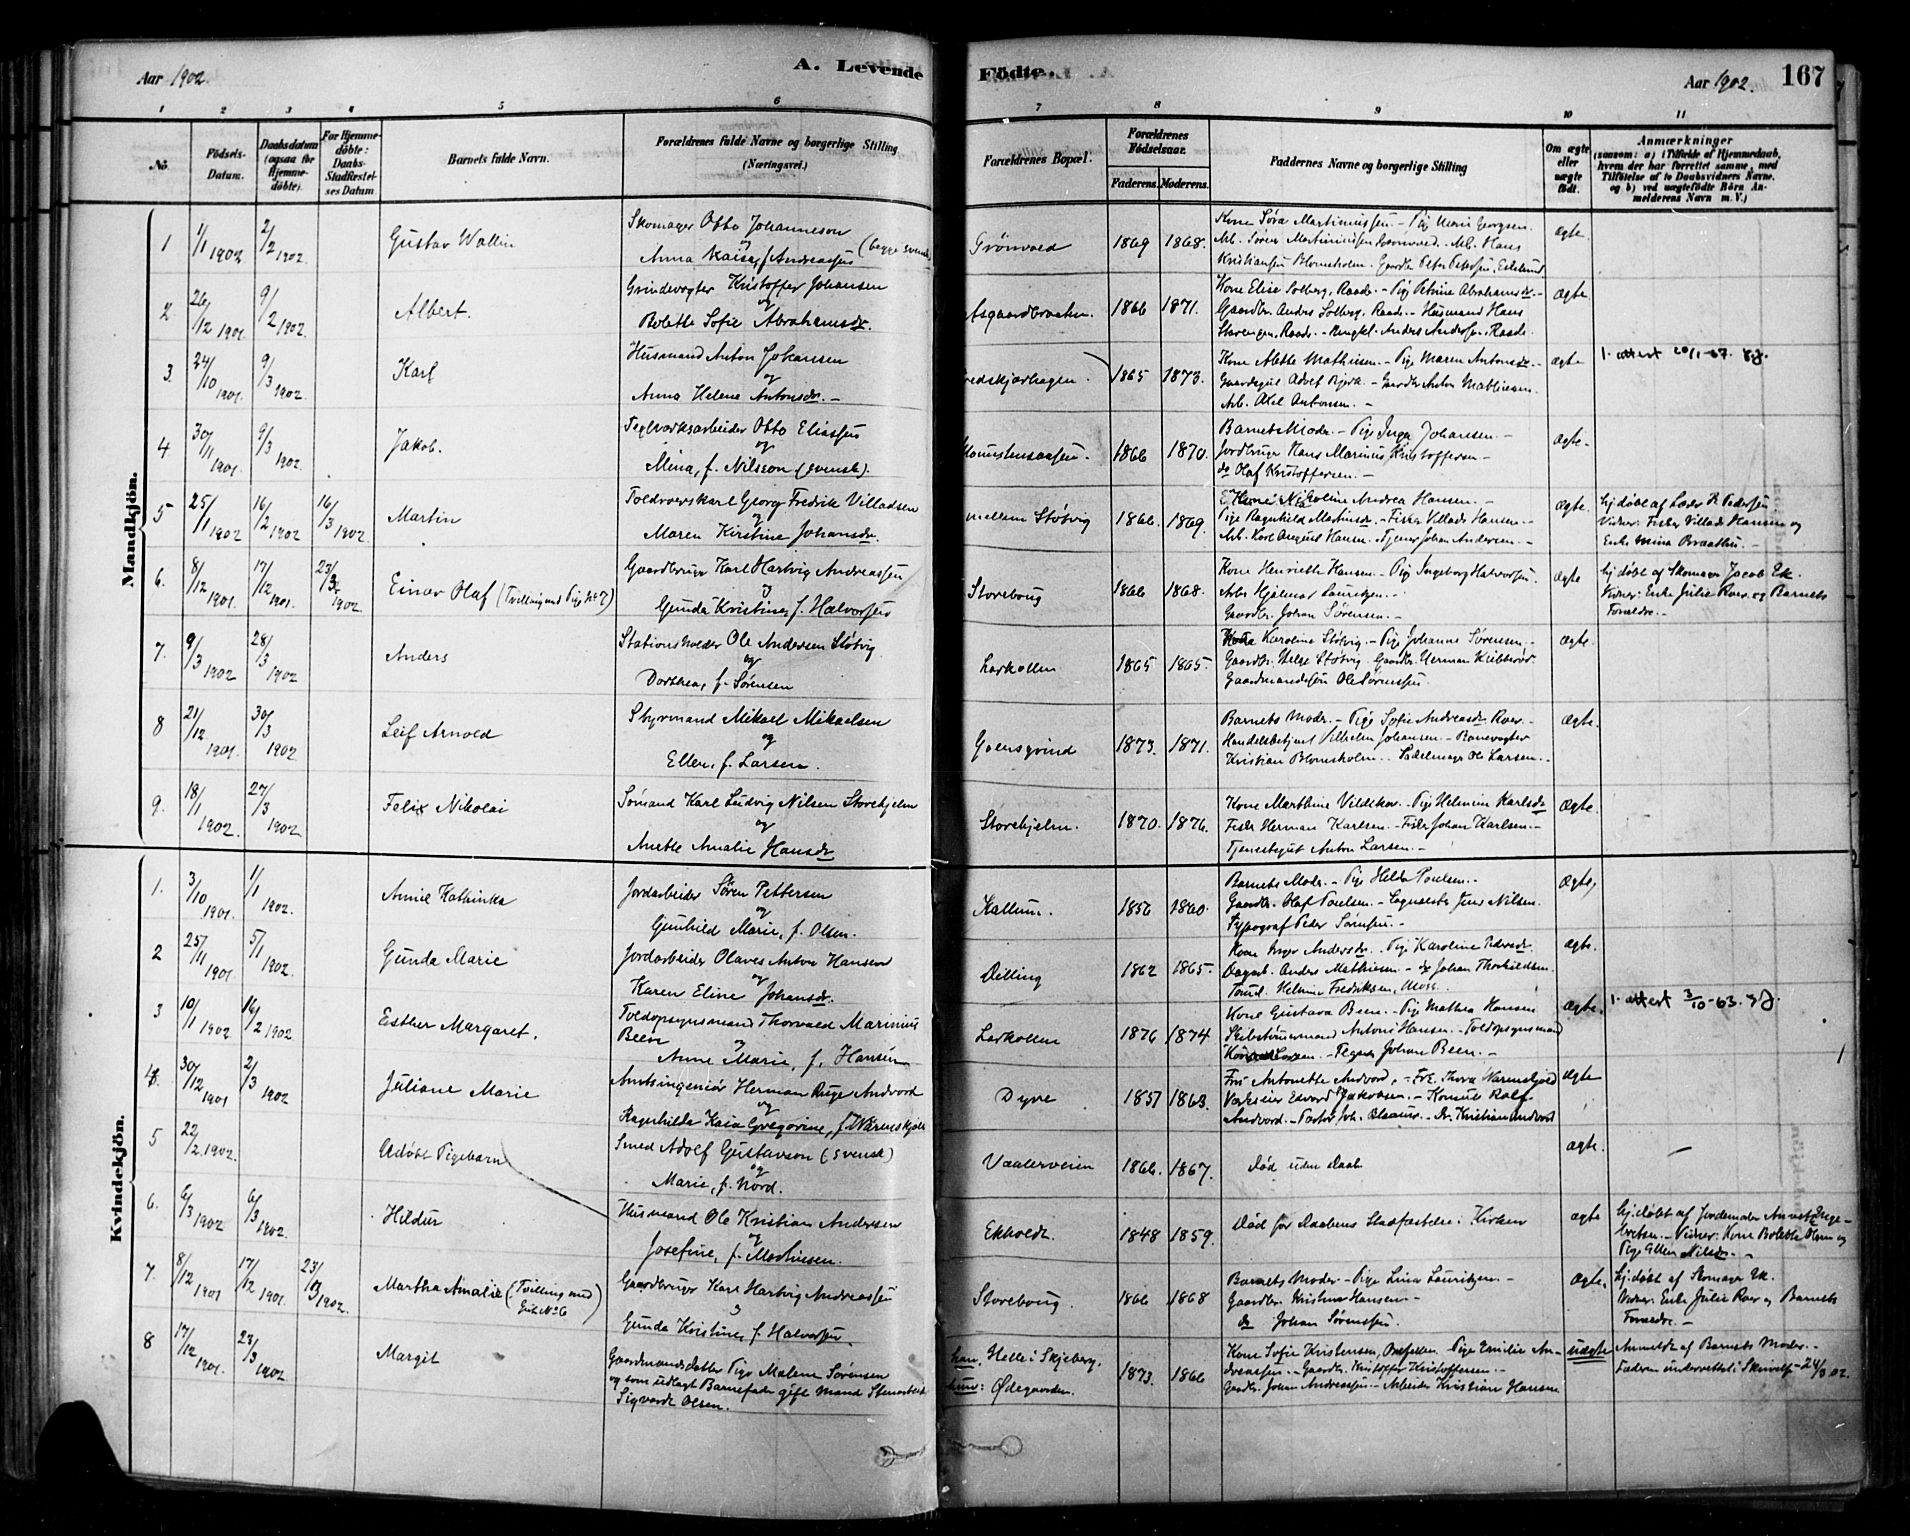 Aar 1902.
A. Levende Födte.
Aar 1902.
167
1 2 3 4 5 6 7 8 9 10 11
No.
Födsels-Datum.
Daabsdatum (ogsaa for Hjemme-döbte).
For Hjemme-döbte: Daabs-Stadfæstelses Datum
Barnets fulde Navn.
Forældrenes fulde Navne og borgerlige Stilling (Næringsvei.)
Forældrenes Bopæl.
Forældrenes Födselsaar.
Faderens. Moderens.
Faddernes Navne og borgerlige Stilling
Om ægte eller uægte födt.
Anmærkninger
(saasom: a) i Tilfælde af Hjemmedaab, hvem der har forrettet samme, med Tilföielse af to Daabsvidners Navne, og b) ved uægtefödte Börn Anmelderens Navn m. V.)
Mandkjön.
1 1/1 1902 2/2 1902 Gustav Wallin
Skomager Otto Johanneson
og (begge svensk)
Anna Kaisa, f. Andreassen
Grönvold 1869 1868.
Kone Söra Martiniussen - Pig Marie Georgsen.
Arb. Sören Martiniussen Grönvold - Arb. Hans
Kristiansen Blomsholm. Gaardbr Peter Petersen, Eskelund
Ægte.
2. 26/12 1901 9/2 1902. Albert.
Grindevogter Kristoffer Johansen
og
Bolette Sofie Abrahamsdr.
1866 1871.
Kone Elise Solberg, Raade. - Pig Petrine Abrahamsdr. -
Gaardbr. Anders Solberg, Raade. - Husmand Hans
Stavengen, Raade. - Ungkl. Anders Andersen, Raade.
Ægte
3. 24/10 1901. 9/3 1902. Karl
Husmand Anton Johansen
og
Anna Helene Antonsdr. -
1865 1873.
Kone Alette Mathisen. - Pige Maren Antonsdr. -
Gaardsgut Adolf Bjerk. - Gaardbr Anton Mathiesen.
Arb. Axel Antonsen. -
Ægte
1. attest 20/1-67.
4 30/11 1901. 9/3 1902. Jakob.
Teglværksarbeider Otto Eliassen
og
Mina, f. Nilsson (svensk).
1866 1870.
Barnets Moder. - Pige Inga Johansen. -
Jordbruger Hans Marinius Kristoffersen -
do Olaf Kristoffersen. -
Ægte.
5 25/1 1902 16/2 1902 16/3 1902. Martin
Toldroerskarl Georg Fredrik Villadsen
og
Maren Kirstine Johansdr.
mellem Stötvig 1866. 1869.
Kone Nikoline Andrea Hansen. -
Pige Ragnhild Martinsdr. - Fisker Villads Hansen -
Arb. Karl August Hansen - Tjener Johan Andersen. -
Ægte.
hj. döbt af Læder P. Pedersen
Vidner: Fisker Villads Hansen og
Enke Mina Braathen. -
6. 8/12 1901. 17/12 1901. 23/3 1902. Einar Olaf (Tvilling med Pige No 7)
Gaardbruger Karl Hartvig Andreassen
og
Gunda Kristine, f. Halvorsen
Storebaug 1866 1868.
Kone Henriette Hansen. - Pige Ingeborg Halvorsen.
Arb. Hjalmar Lauritzen. -
Gaardbr. Johan Sörensen. -
Ægte
hj. döbt af Skomager Jacob Ek.
Vidner: Enke Julie Roer og Barnets
Forældre. -
7. 9/3 1902 28/3 1902 Anders
Stationsholder Ole Andersen Stötvig
og
Dorthea, f. Sörensen
Larkollen 1865 1865.
Kone Karoline Stötvig. - Pige Johanne Sörensen. -
Gaardbr. Helge Stötvig. Gaardbr. Herman Kubberöd.
Gaardmandssön Ole Sörensen.
Ægte.
8 21/12 1901. 30/3 1902 Leif Arnold
Styrmand Mikael Mikaelsen
og
Ellen, f. Larsen.
Goensgrind 1873. 1871.
Barnets Moder. - Pige Sofie Andreasdr Roer. -
Handelsbetjent Vilhelm Johansen - Banevogter
Kristian Blomsholm. Sadelmager Ole Larsen. -
Ægte.
9. 18/1 1902. 27/3 1902. Felix Nikolai
Sömand Karl Ludvig Nilsen Storehjelm
og
Anette Amalie Hansdr
Storehjelm. 1870. 1876.
Kone Marthine Vildskov. - Pige Helmine Karlsdr
Fisker Herman Karlsen. - Fisker Johan Karlsen. -
Tjenestegut Anton Larsen. -
Ægte.
Kvindekjön.
1. 3/10 1901. 1/1 1902. Annie Kathinka
Jordarbeider Sören Pettersen
og
Gunhild Marie, f. Olsen.
Kallum. 1856 1860.
Barnets Moder. - Pige Helda Poulsen. -
Gaardbr. Olaf Poulsen. - Jens Nilsen.
Typograf Peder Sörensen. -
Ægte,
2 25/11 1901 5/1 1902. Gunda Marie
Jordarbeider Olaves Anton Hansen
og
Karen Eline Johansdr.
Dilling 1862 1865.
Kone Inger Andersdr. - Pige Karoline Pedersdr.
Dagarb. Anders Mathiesen. - do Johan Thorkildsen.
Tömd. Helmer Fredriksen, Moss.
Ægte.
3 10/1 1902 16/2 1902 Esther Margaret.
Toldopsynsmand Thorvald Marinius
Been og
Anne Marie, f. Hansen
Larkollen 1876 1874
Kone Gustava Been. - Pige Mathea Hansen
Skibstömmermand Antoni Hansen. - Toldopsynsmand
Larsen. - Tegner Johan Been. -
Ægte.
1. attest 3/10-63.
4. 30/12 1901 2/3 1902 Juliane Marie
Amtsingeniör Herman Ruge Andvord
og
Ragnhilda Kaia Gregorine, f. Warenskjold
Dyre 1857 1863.
Fru Antonette Andvord, - Frk. Thora Warenskjold
Værkseier Edvard Jakobsen. - Konsul Rolf
Andvord. - Pastor Joh. Blaauw. - Dr. Kristian Andvord
Ægte
5 22/2 1902. Udöbt Pigebarn
Smed Adolf Gustavson (svensk)
og
Marie, f. Nord.
Vaalerveien 1866. 1867.
Död uden Daab
Ægte.
6. 6/3 1902 6/3 1902. Hildur
Husmand Ole Kristian Andersen
og
Josefine, f. Martinsen.
Ekholdt 1848 1859.
Död för Daabens Stadfæstelse i Kirken
Ægte
hj. döbt af Jordemoder Annette Inge-
bretsen. - Vidner: Kone Bolette Olsen og
Pige Ellen Nilsdr. -
7. 8/12 1901 17/12 1901. 23/3 1902. Martha Amalie (Tvilling med Gut No 6)
Gaardbruger Karl Hartvig Andreassen
og
Gunda Kristine, f. Halvorsen
Storebaug. 1866 1868
Barnets Moder - Pige Lina Lauritzen. -
Gaardbr. Kristian Hansen. -
do Johan Sörensen.
Ægte.
hj. döbt af Skomager Ek.
Vidner: Enke Julie Roer og Barnets
Forældre. -
8 17/12 1901. 23/3 1902 Margit
Gaardmandsdatter Pige Malene Sörensen
og som udlagt Barnefader gift Mand Stenarbeider
Sigvardt Olsen.
han: Helle i Skjeberg,
hun: Ödegaarden. 1873. 1866
Kone Sofie Kristensen, - Pige Emilie An-
dreassen. - Gaardbr. Kristoffer Kristoffersen. -
Gaardbr. Johan Andreassen. - Arbeider Kristian Hansen
uægte
Anmeldt af Barnets Moder.
Faderen underrettet i Skrivelse 24/3 02.